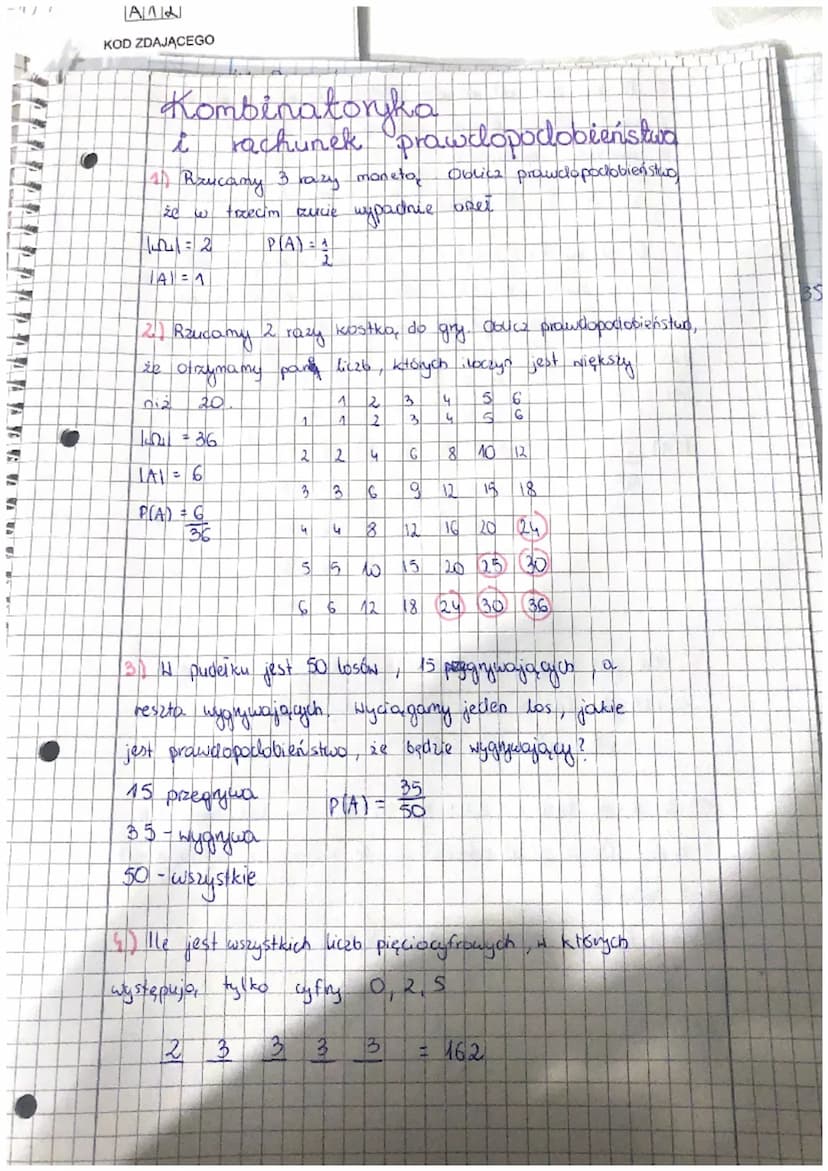 A12
KOD ZDAJĄCEGO
Kombinatoryka
i rachunek prawdopodobieństwa
1) Rzucamy 3 razy monetą. Oblicz prawdopodobieństwo,
że w trzecim rzucie wypadnie orzeł
|Ω| = 2 P(A) = 1/2
|A| = 1
2) Rzucamy 2 razy kostką do gry. Oblicz prawdopodobieństwo,
że otrzymamy parę liczb, których iloczyn jest większy
niż 20. 1 2 3 4 5 6
1 1 2 3 4 5 6
|Ω| = 36
2 2 4 6 8 10 12
|A| = 6
3 3 6 9 12 15 18
P(A) = 6/36
4 4 8 12 16 20 24
5 5 10 15 20 25 30
6 6 12 18 24 30 36
3) W pudełku jest 50 losów, 15 przegrywających, a
reszta wygrywających. Wyciągamy jeden los, jakie
jest prawdopodobieństwo, że będzie wygrywający?
15 przegrywa P(A) = 35/50
35 - wygrywa
50 - wszystkie
4) Ile jest wszystkich liczb pięciocyfrowych, w których
występują tylko cyfry 0, 2, 5
2 3 3 3 3 = 162
35